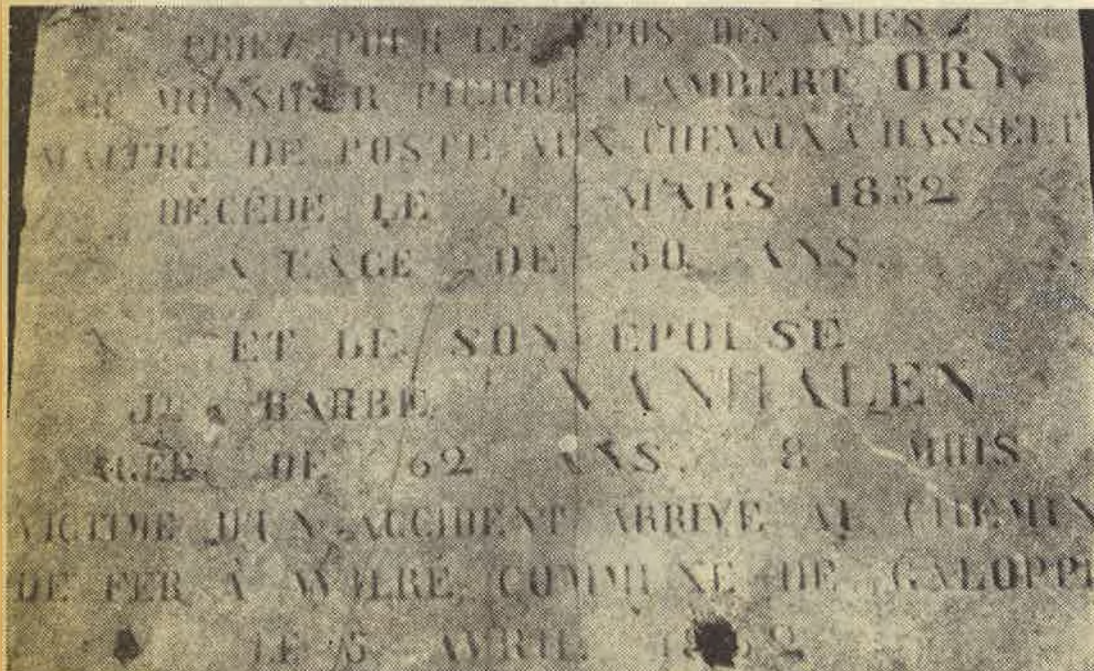 PRIEZ POUR LE REPOS DES AMES
DE MONSIEUR PIERRE LAMBERT ORY
MAITRE DE POSTE AUX CHEVAUX A HASSELT
DÉCÉDÉ LE MARS 1852
A L'AGE DE 50 ANS
ET DE SON EPOUSE
BARBE VANHALEN
AGEE DE 62 ANS 8 MOIS
VICTIME D'UN ACCIDENT ARRIVE AU CHEMIN
DE FER À WYLRE COMMUNE DE GALOPPE
LE 5 AVRIL